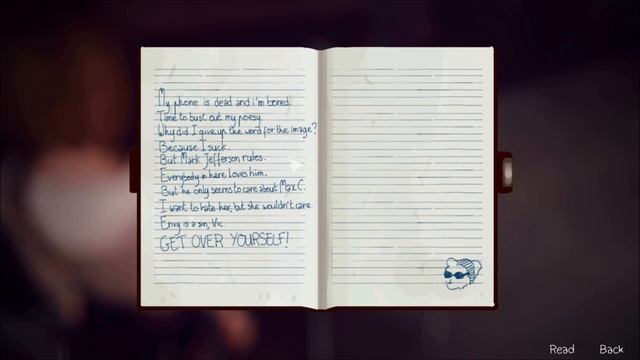 My phone is dead and i'm bored.
Time to bust out my poesy.
Why did I give up the word for the image?
Because I suck.
But Mark Jefferson rules.
Everybody in here loves him.
But he only seems to care about Max C.
I want to hate her, but she wouldn't care.
Envy is a sin, Vic.
GET OVER YOURSELF!
Read Back